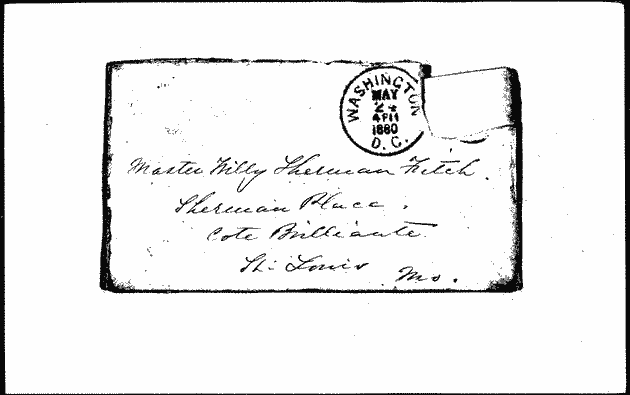 WASHINGTON
MAY
24
4 PM
1880
D.C.
Master Willy Sherman Fitch.
Sherman Place.
Cote Brilliante
St. Louis
Mo.